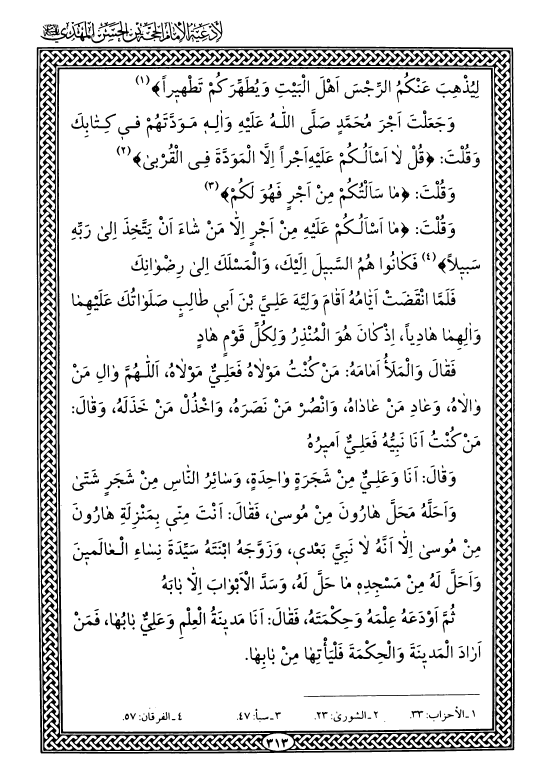 لأدعية الإمام الحجة بن الحسن المهدي
لِيُذْهِبَ عَنْكُمُ الرِّجْسَ اَهْلَ الْبَيْتِ وَيُطَهِّرَكُمْ تَطْهيراً﴾(١)
وَجَعَلْتَ اَجْرَ مُحَمَّدٍ صَلَّى اللهُ عَلَيْهِ وَاٰلِهِ مَوَدَّتَهُمْ في كِتٰابِكَ
وَقُلْتَ: ﴿قُلْ لاٰ اَسْاَلُكُمْ عَلَيْهِ اَجْراً اِلَّا الْمَوَدَّةَ فِى الْقُرْبىٰ﴾(٢)
وَقُلْتَ: ﴿مٰا سَاَلْتُكُمْ مِنْ اَجْرٍ فَهُوَ لَكُمْ﴾(٣)
وَقُلْتَ: ﴿مٰا اَسْاَلُكُمْ عَلَيْهِ مِنْ اَجْرٍ اِلّٰا مَنْ شٰاءَ اَنْ يَتَّخِذَ اِلىٰ رَبِّهِ
سَبيلاً﴾(٤) فَكٰانُوا هُمُ السَّبيلَ اِلَيْكَ، وَالْمَسْلَكَ اِلىٰ رِضْوٰانِكَ
فَلَمَّا انْقَضَتْ اَيّٰامُهُ اَقٰامَ وَلِيَّهُ عَلِيَّ بْنَ اَبي طٰالِبٍ صَلَوٰاتُكَ عَلَيْهِمٰا
وَاٰلِهِمٰا هٰادِياً، اِذْ كٰانَ هُوَ الْمُنْذِرُ وَلِكُلِّ قَوْمٍ هٰادٍ
فَقٰالَ وَالْمَلَأُ اَمٰامَهُ: مَنْ كُنْتُ مَوْلاٰهُ فَعَلِيٌّ مَوْلاٰهُ، اَللّٰهُمَّ وٰالِ مَنْ
وٰالاٰهُ، وَعٰادِ مَنْ عٰادٰاهُ، وَانْصُرْ مَنْ نَصَرَهُ، وَاخْذُلْ مَنْ خَذَلَهُ، وَقٰالَ:
مَنْ كُنْتُ اَنَا نَبِيُّهُ فَعَلِيٌّ اَميرُهُ
وَقٰالَ: اَنَا وَعَلِيٌّ مِنْ شَجَرَةٍ وٰاحِدَةٍ، وَسٰائِرُ النّٰاسِ مِنْ شَجَرٍ شَتّىٰ
وَاَحَلَّهُ مَحَلَّ هٰارُونَ مِنْ مُوسىٰ، فَقٰالَ: اَنْتَ مِنّي بِمَنْزِلَةِ هٰارُونَ
مِنْ مُوسىٰ اِلّٰا اَنَّهُ لاٰ نَبِيَّ بَعْدي، وَزَوَّجَهُ ابْنَتَهُ سَيِّدَةَ نِسٰاءِ الْعٰالَمينَ
وَاَحَلَّ لَهُ مِنْ مَسْجِدِهِ مٰا حَلَّ لَهُ، وَسَدَّ الْاَبْوٰابَ اِلّٰا بٰابَهُ
ثُمَّ اَوْدَعَهُ عِلْمَهُ وَحِكْمَتَهُ، فَقٰالَ: اَنَا مَدينَةُ الْعِلْمِ وَعَلِيٌّ بٰابُهٰا، فَمَنْ
اَرٰادَ الْمَدينَةَ وَالْحِكْمَةَ فَلْيَأْتِهٰا مِنْ بٰابِهٰا.
١ ـ الأحزاب: ٣٣. ٢ ـ الشورىٰ: ٢٣. ٣ ـ سبأ: ٤٧. ٤ ـ الفرقان: ٥٧.
٣١٣